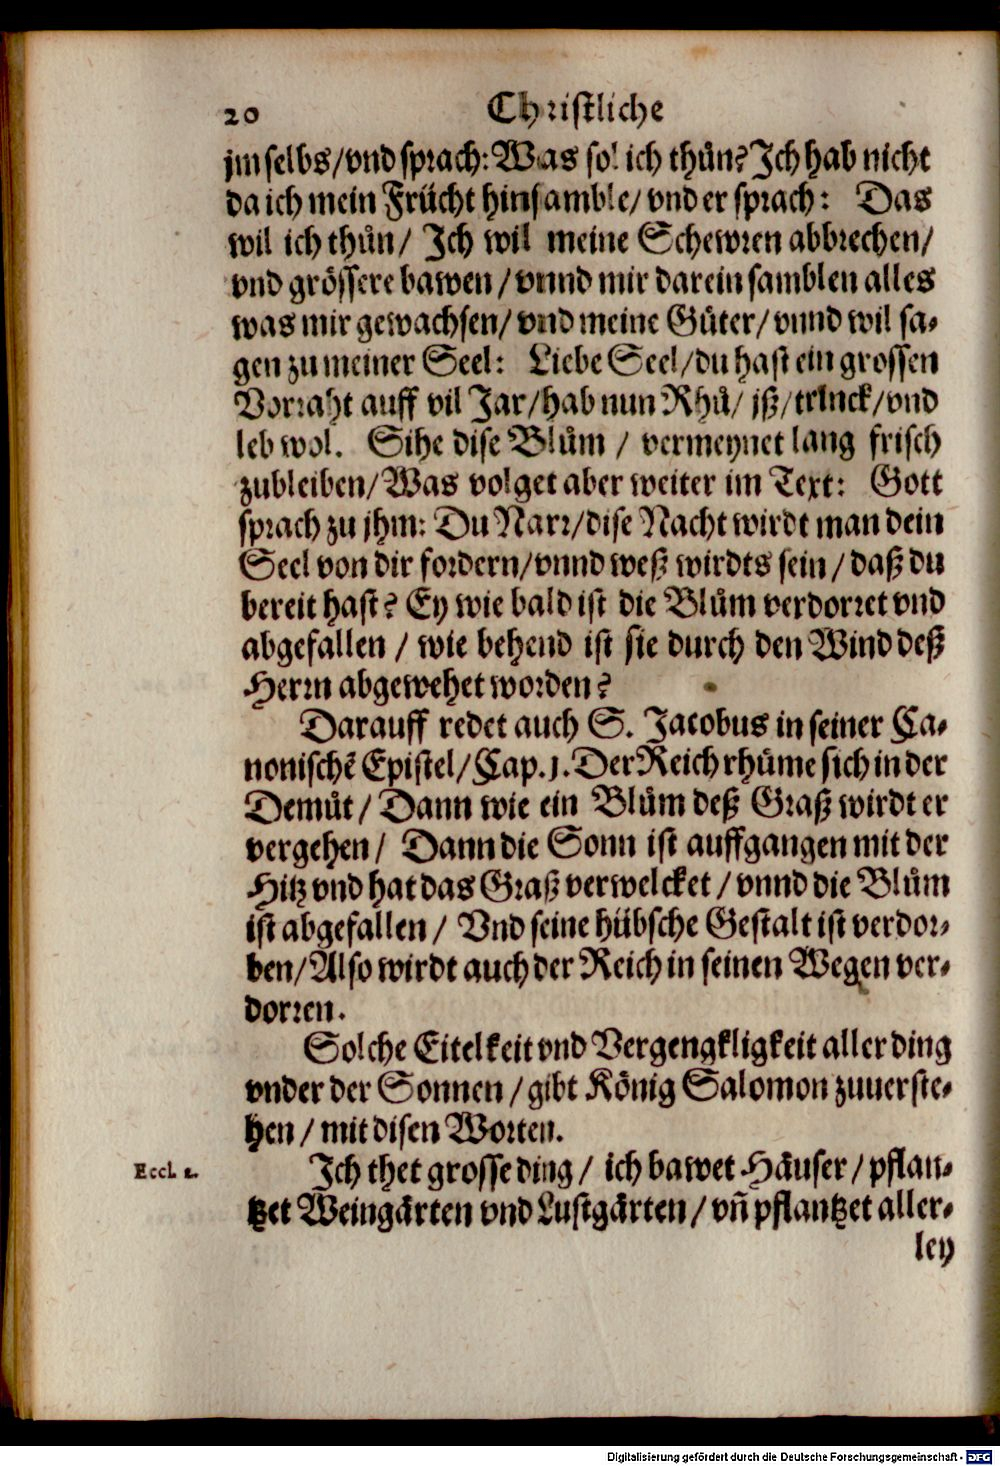 20 Christliche
jm selbs/vnd sprach: Was sol ich thůn? Ich hab nicht
da ich mein Frücht hinsamble/ vnd er sprach: Das
wil ich thůn/ Ich wil meine Schewren abbrechen/
vnd grössere bawen/ vnnd mir darein samblen alles
was mir gewachsen/ vnd meine Güter/ vnnd wil sa-
gen zu meiner Seel: Liebe Seel/du hast ein grossen
Vorraht auff vil Jar/hab nun Rhů/ jß/trinck/vnd
leb wol. Sihe dise Blům / vermeynet lang frisch
zubleiben/Was volget aber weiter im Text: Gott
sprach zu jhm: Du Narr/dise Nacht wirdt man dein
Seel von dir fordern/vnnd weß wirdts sein/ daß du
bereit hast? Ey wie bald ist die Blům verdorret vnd
abgefallen / wie behend ist sie durch den Wind deß
Herrn abgewehet worden?
Darauff redet auch S. Jacobus in seiner Ca-
nonischẽ Epistel/Cap.1. Der Reich rhüme sich in der
Demůt/ Dann wie ein Blům deß Graß wirdt er
vergehen/ Dann die Sonn ist auffgangen mit der
Hitz vnd hat das Graß verwelcket/ vnnd die Blům
ist abgefallen/ Vnd seine hübsche Gestalt ist verdor-
ben/Also wirdt auch der Reich in seinen Wegen ver-
dorren.
Solche Eitelkeit vnd Vergengkligkeit aller ding
vnder der Sonnen/ gibt König Salomon zuuerste-
hen/ mit disen Worten.
Eccl. 2. Ich thet grosse ding/ ich bawet Häuser/ pflan-
tzet Weingärten vnd Lustgärten/ vñ pflantzet aller-
ley
Digitalisierung gefördert durch die Deutsche Forschungsgemeinschaft - DFG